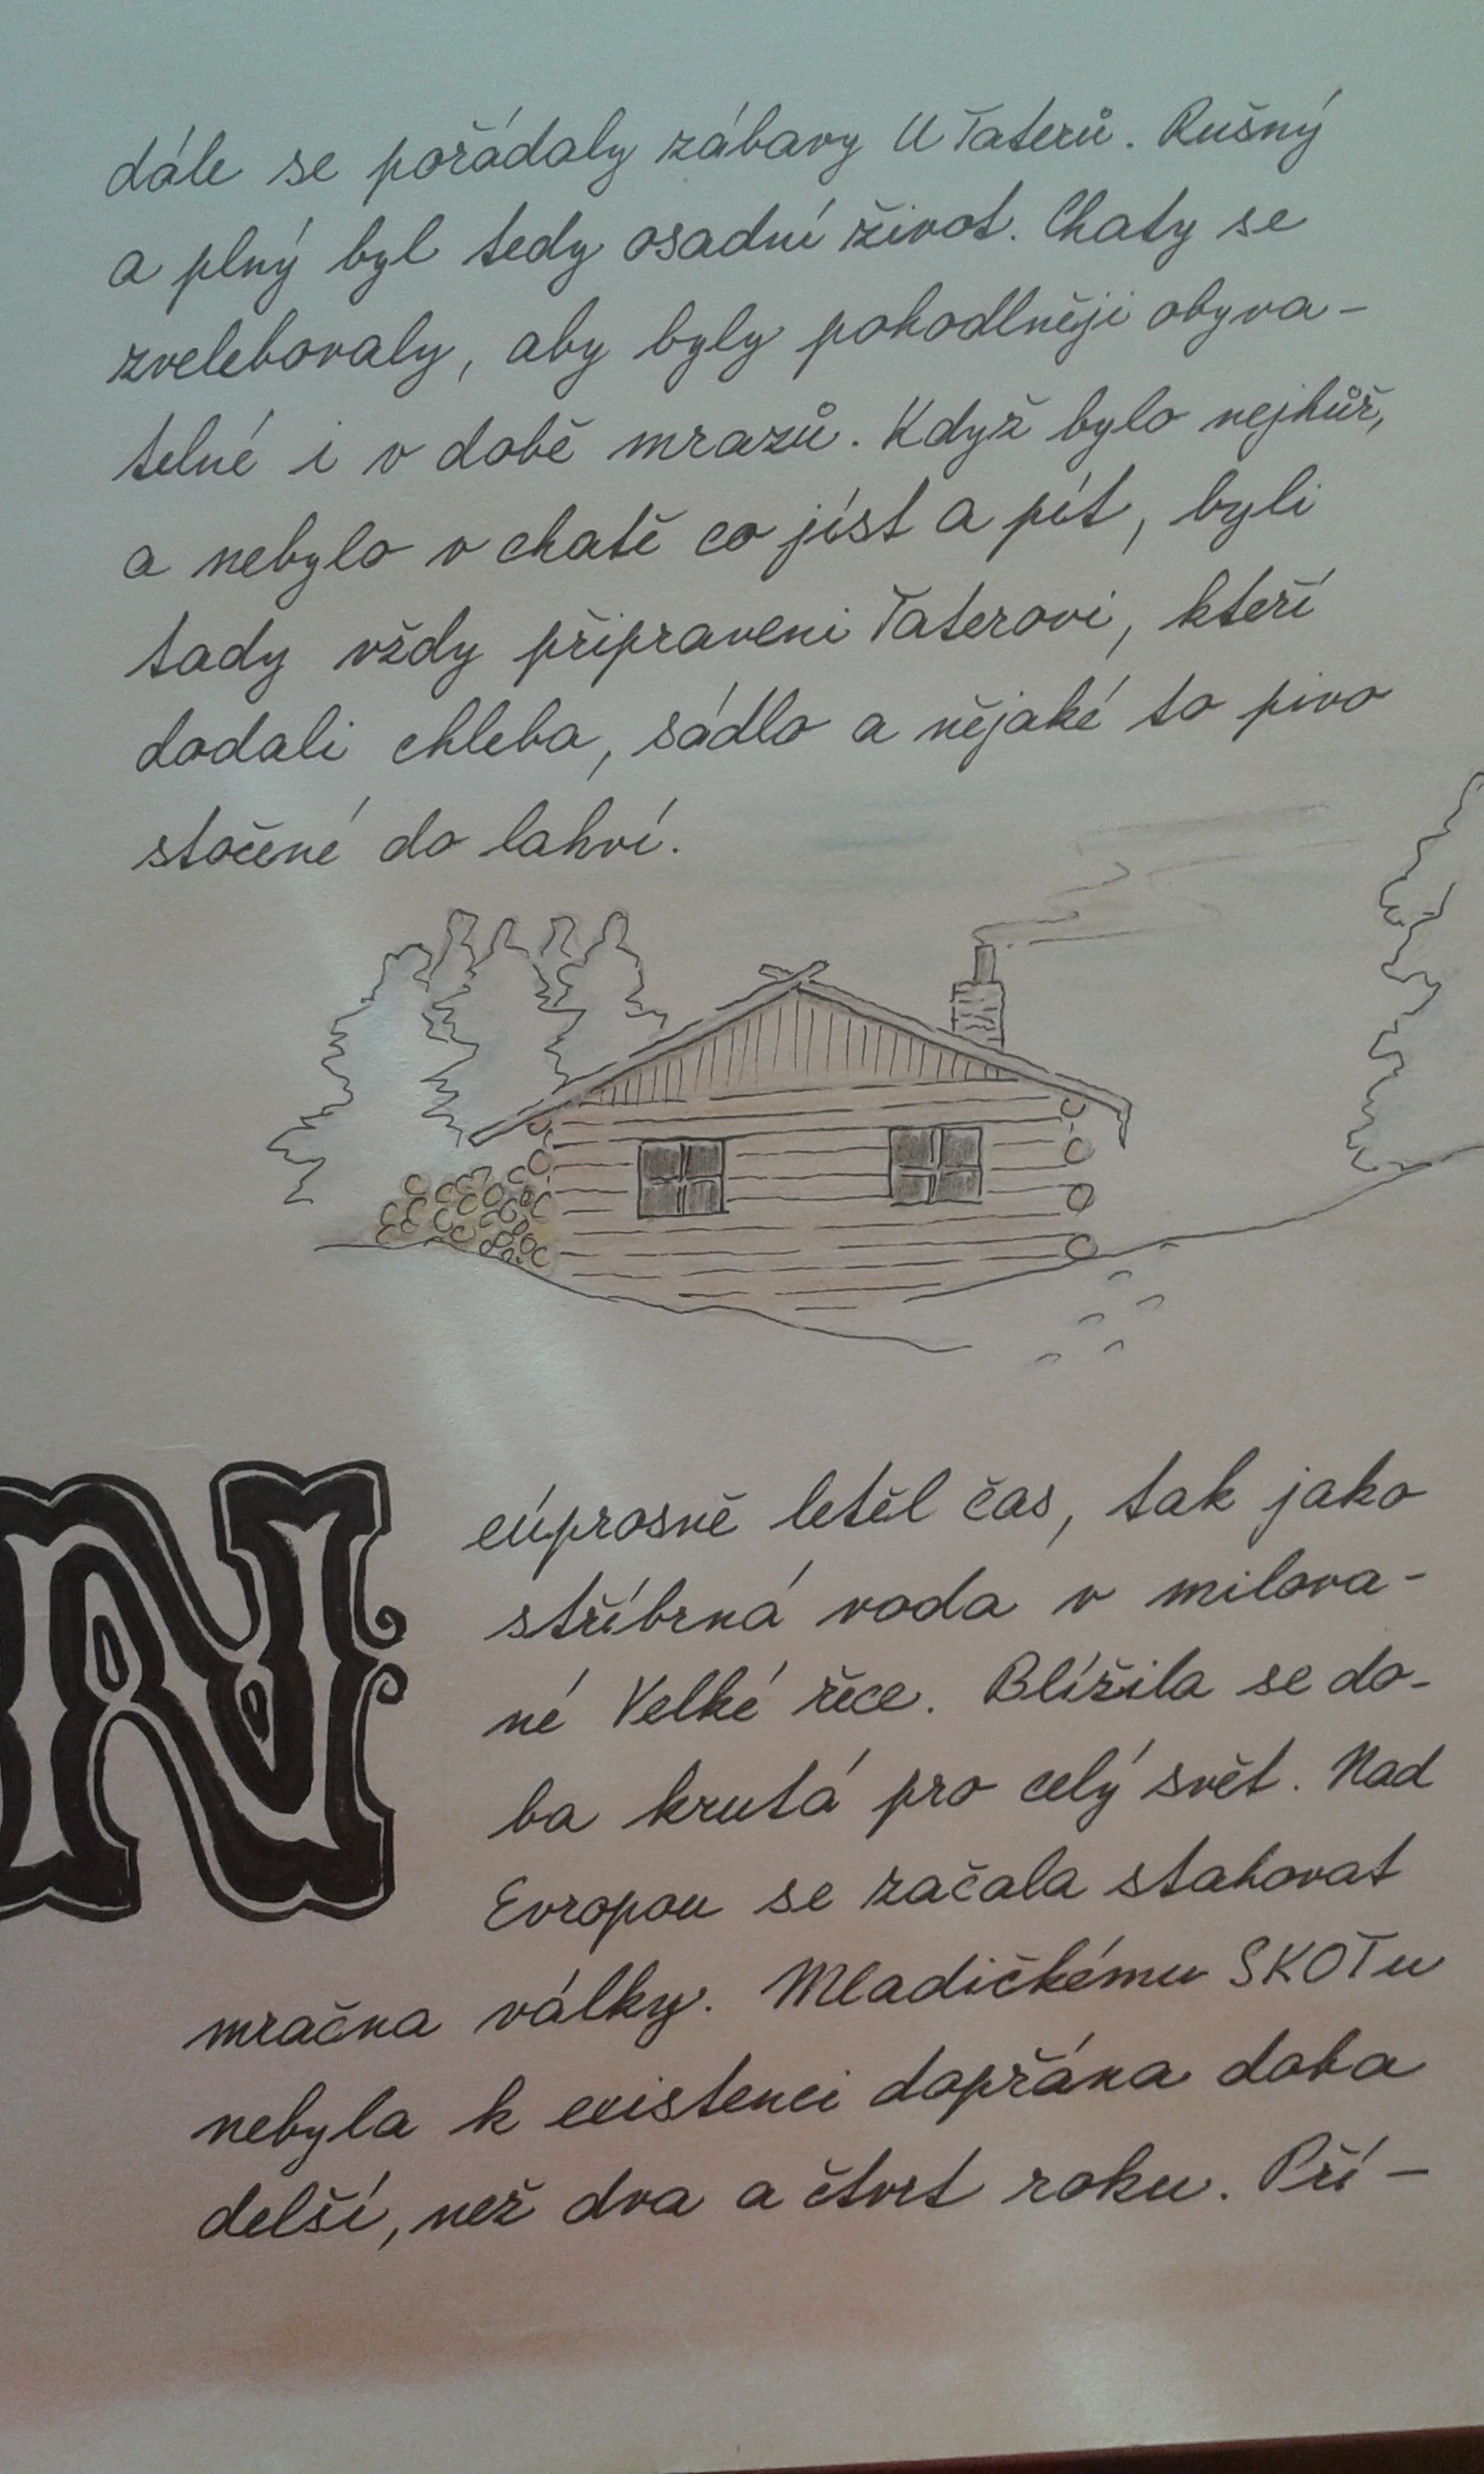 dále se pořádaly zábavy U Taterů. Rušný
a plný byl tedy osadní život. Chaty se
zvelebovaly, aby byly pohodlněji obyva-
telné i v době mrazů. Když bylo nejhůř,
a nebylo v chatě co jíst a pít, byli
tady vždy připraveni Taterovi, kteří
dodali chleba, sádlo a nějaké to pivo
stočené do lahví.
Neúprosně letěl čas, tak jako
stříbrná voda v milova-
né Velké řece. Blížila se do-
ba krutá pro celý svět. Nad
Evropou se začala stahovat
mračna války. Mladičkému SKOTu
nebyla k existenci dopřána doba
delší, než dva a čtvrt roku. Pří-